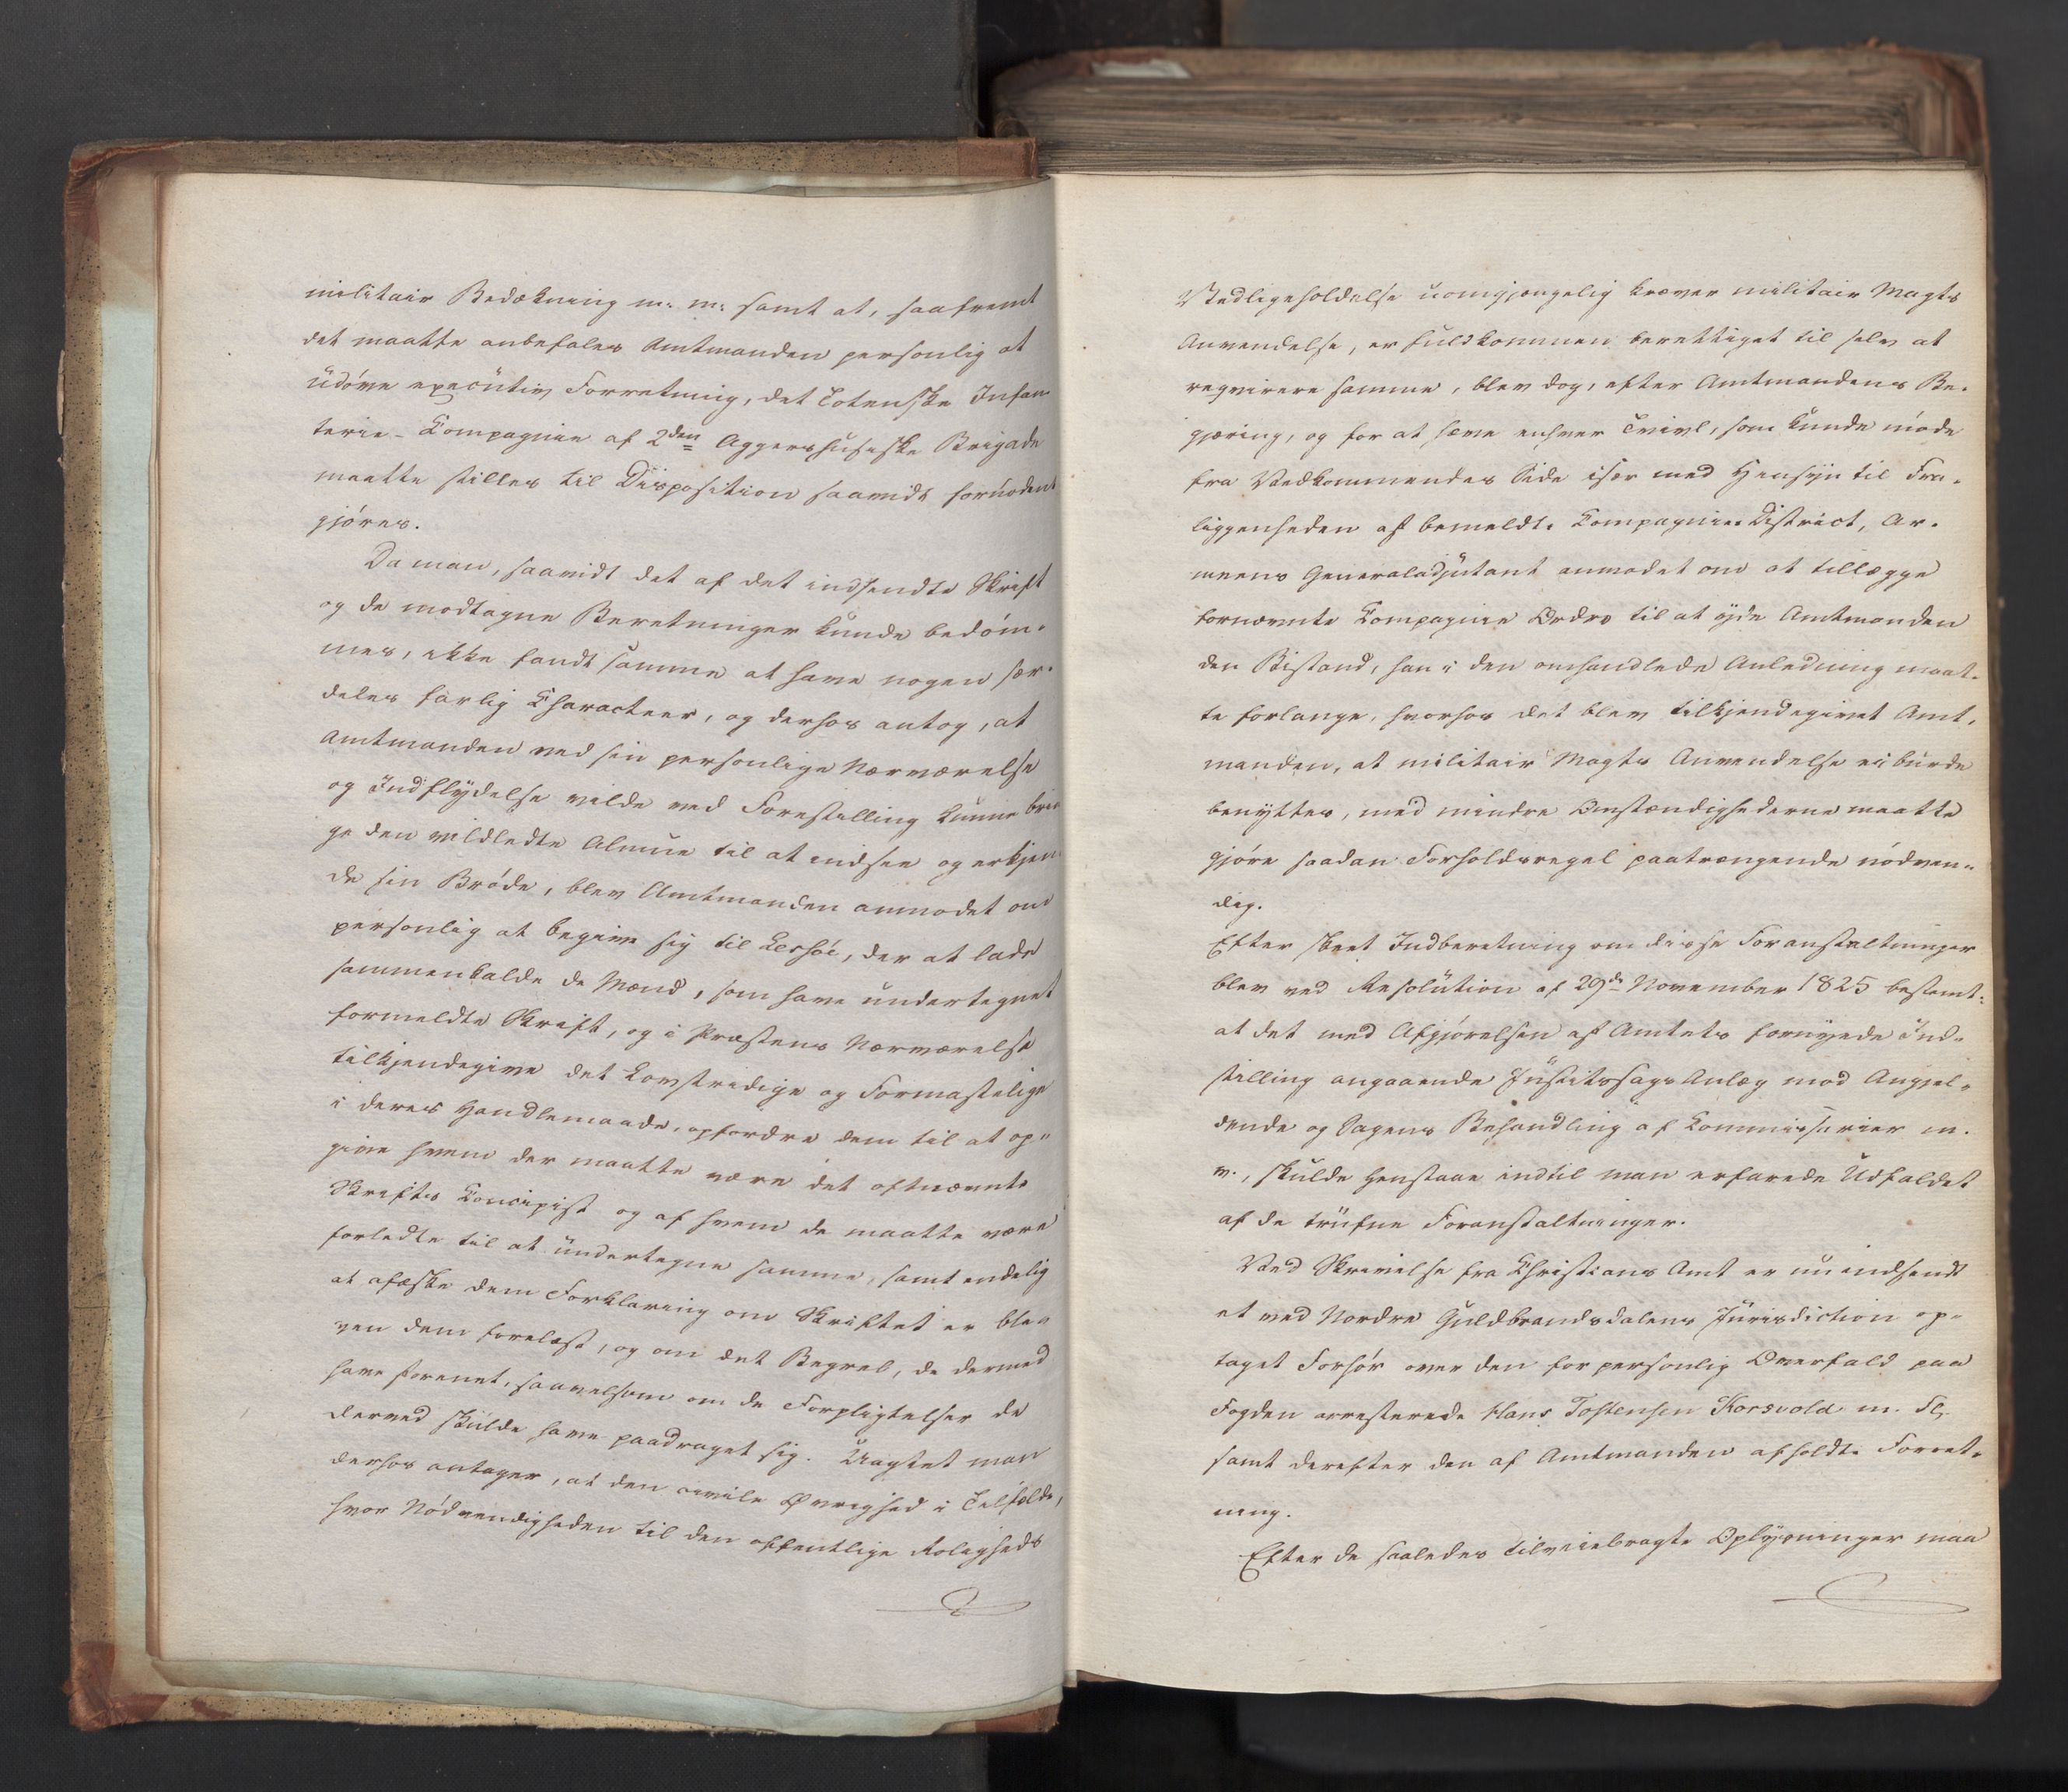 militair Bedækning m: m: samt at, saafremt
det maatte anbefales Amtmanden personlig at
udøve executiv Forretning, det Totenske Infan-
terie-Compagnie af 2den Aggershusiske Brigade
maatte stilles til Disposition saavidt fornødent
gjøres.
Da man, saavidt det af det indsendte Skrift
og de modtagne Beretninger kunde bedøm-
mes, ikke fandt samme at have nogen sær-
deles farlig Characteer, og derhos antog, at
Amtmanden ved sin personlige Nærværelse
og Indflydelse vilde ved Forestilling kunne brin
ge den vildledte Almue til at indsee og erkjen
de sin Brøde, blev Amtmanden anmodet om
personlig at begive sig til Lessøe, der at lade
sammenkalde de Mænd, som have undertegnet
formeldte Skrift, og i Præstens Nærværelse
tilkjendegive det Lovstridige og Formastelige
i deres Handlemaade, opfordre dem til at op-
give hvem der maatte være det oftnævnte
Skrifts Koncipist og af hvem de maatte være
forledte til at undertegne samme, samt endelig
at afæske dem Forklaring om Skriftet er ble-
ven dem forelæst, og om det Begreb, de dermed
have forenet, saavelsom om de Forpligtelser de
derved skulde have paadraget sig. Uagtet man
derhos antager, at den civile Øvrighed i Tilfælde,
hvor Nødvendigheden til den offentlige Roligheds
Vedligeholdelse uomgjængelig kræver militair Magts
Anvendelse, er fuldkommen berettiget til selv at
reqvirere samme, blev dog, efter Amtmandens Be-
gjæring, og for at hæve enhver Tvivl, som kunde møde
fra Vedkommendes Side især med Hensyn til Fra-
liggenheden af bemeldte Compagnies District, Ar-
meens Generaladjutant anmodet om at tillægge
fornævnte Compagnie Ordre til at yde Amtmanden
den Bistand, han i den omhandlede Anledning maat-
te forlange, hvorhos det blev tilkjendegivet Amt-
manden, at militair Magts Anvendelse ei burde
benyttes, med mindre Omstændighederne maatte
gjøre saadan Forholdsregel paatrængende nødven-
dig.
Efter skeet Indberetning om disse Foranstaltninger
blev ved Resolution af 29de November 1825 bestemt:
at det med Afgjørelsen af Amtets fornyede Ind-
stilling angaaende JustitssagsAnlæg mod Angjel-
dende og Sagens Behandling af Kommissarier m.
v., skulde henstaae indtil man erfarede Udfaldet
af de trufne Foranstaltninger.
Ved Skrivelse fra Christians Amt er nu indsendt
et ved Nordre Guldbrandsdalens Jurisdiction op-
taget Forhør over den for personlig Overfald paa
Fogden arresterede Hans Tostensen Korsvold m. Fl.
samt derefter den af Amtmanden afholdte Forret-
ning.
Efter de saaledes tilveiebragte Oplysninger maa